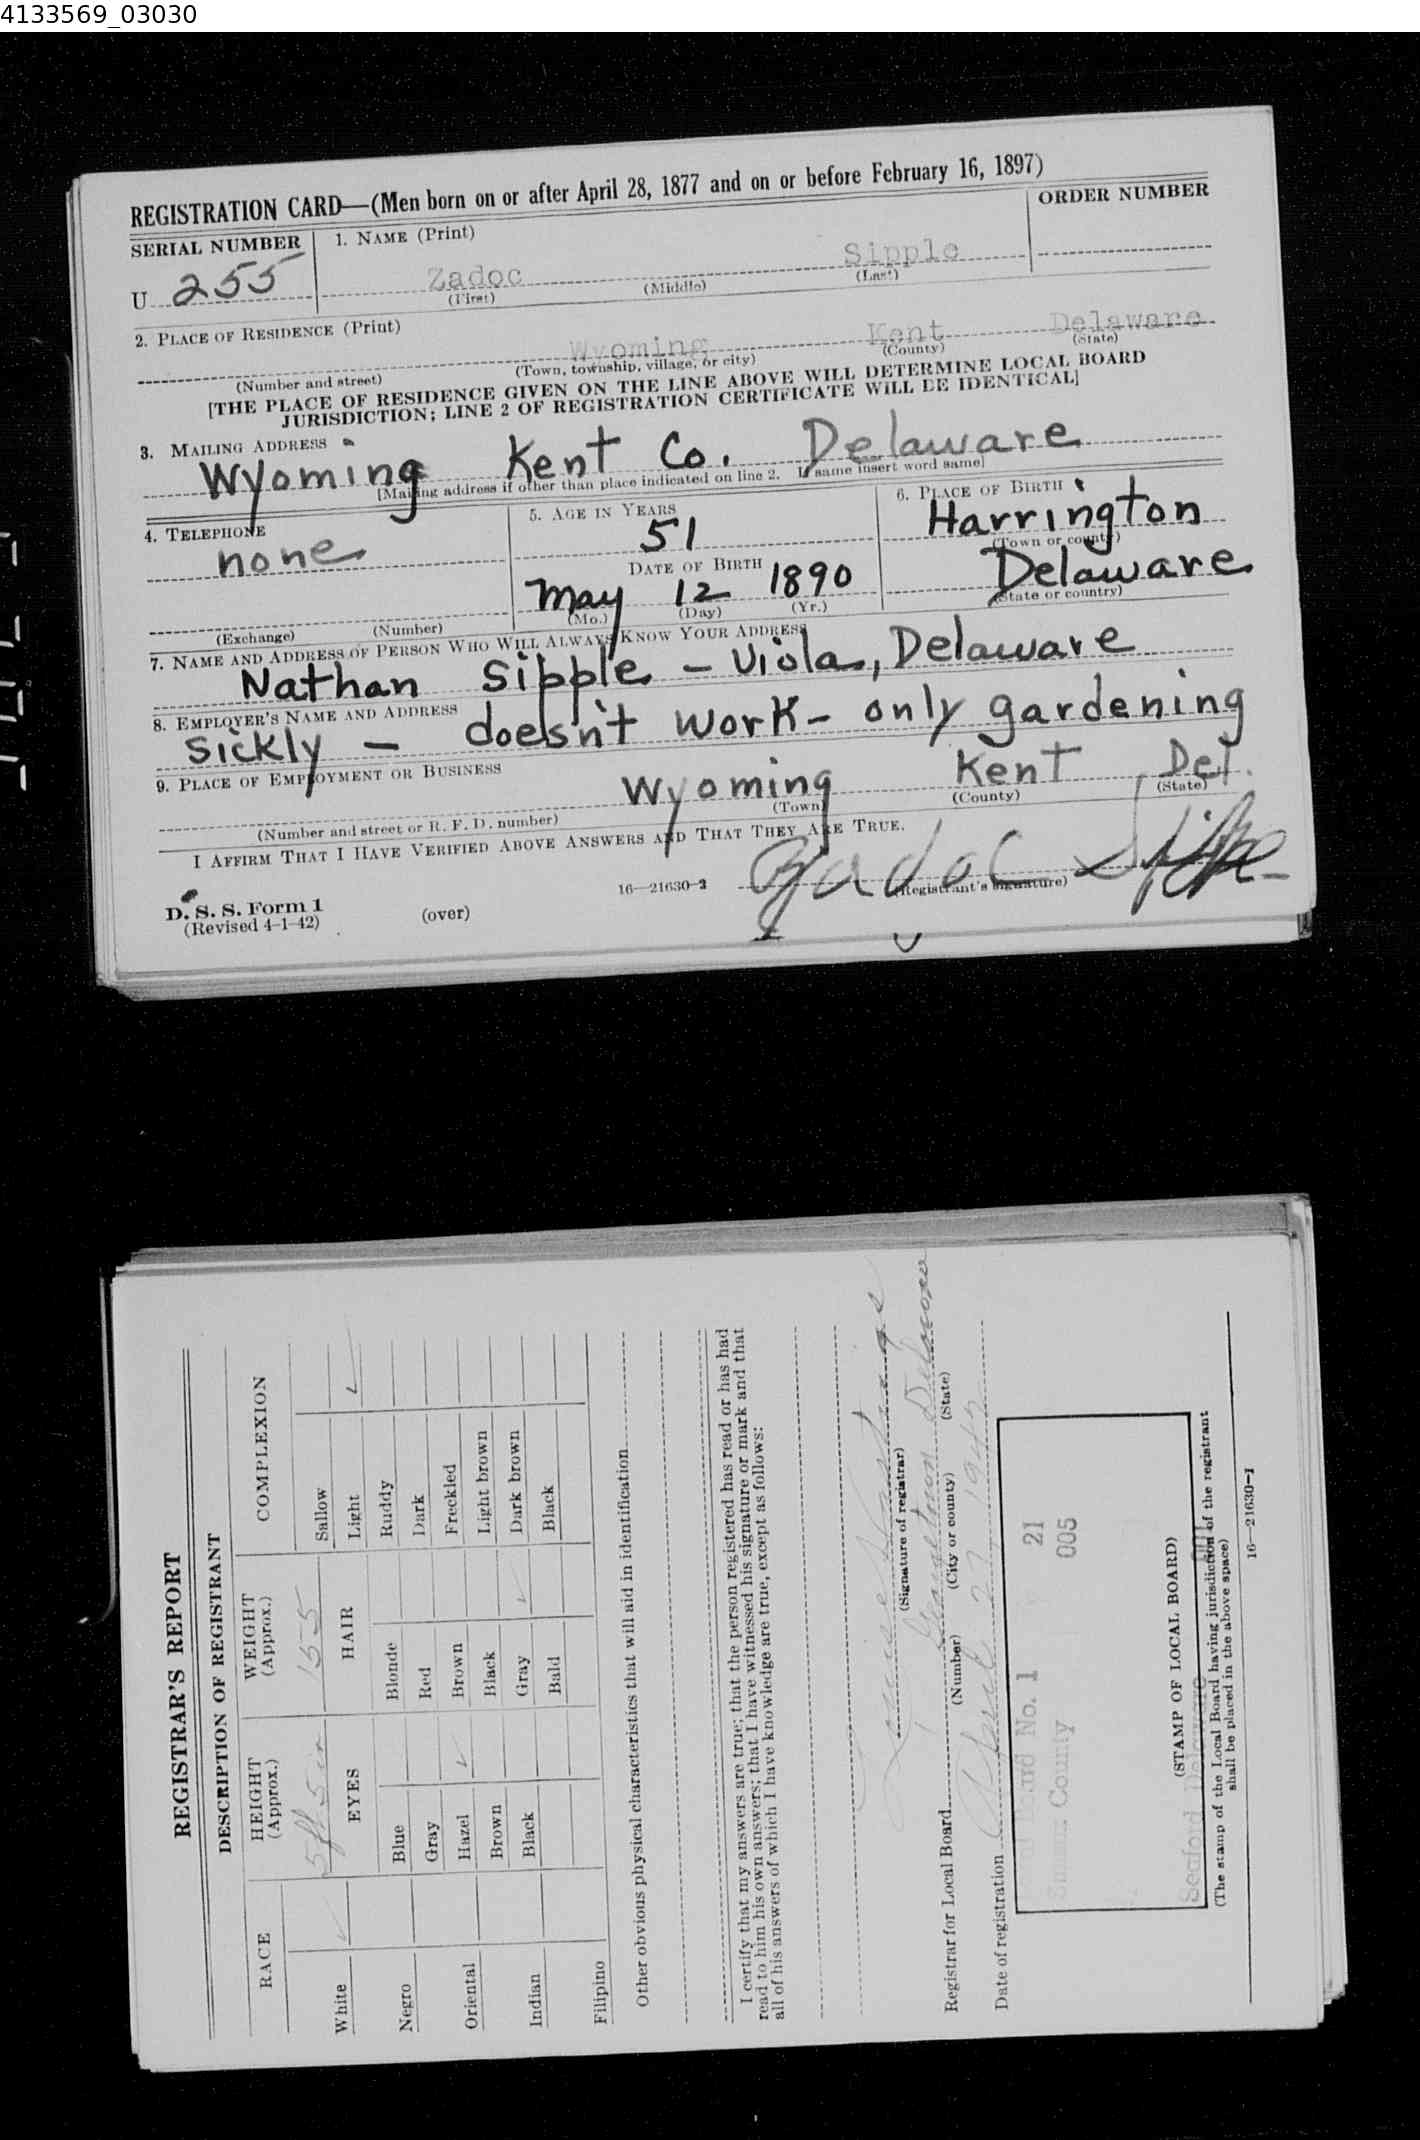 4133569_03030
REGISTRATION CARD—(Men born on or after April 28, 1877 and on or before February 16, 1897)
SERIAL NUMBER 1. NAME (Print) ORDER NUMBER
U 255 Zadoc Sipple
(First) (Middle) (Last)
2. PLACE OF RESIDENCE (Print)
Wyoming Kent Delaware
(Number and street) (Town, township, village, or city) (County) (State)
[THE PLACE OF RESIDENCE GIVEN ON THE LINE ABOVE WILL DETERMINE LOCAL BOARD
JURISDICTION; LINE 2 OF REGISTRATION CERTIFICATE WILL BE IDENTICAL]
3. MAILING ADDRESS
Wyoming Kent Co. Delaware
[Mailing address if other than place indicated on line 2. If same insert word same]
4. TELEPHONE 5. AGE IN YEARS 6. PLACE OF BIRTH
none 51 Harrington
(Town or county)
DATE OF BIRTH Delaware
May 12 1890
(Exchange) (Number) (Mo.) (Day) (Yr.) (State or country)
7. NAME AND ADDRESS OF PERSON WHO WILL ALWAYS KNOW YOUR ADDRESS
Nathan Sipple - Viola, Delaware
8. EMPLOYER'S NAME AND ADDRESS
Sickly - doesn't work - only gardening
9. PLACE OF EMPLOYMENT OR BUSINESS
Wyoming Kent Del.
(Number and street or R. F. D. number) (Town) (County) (State)
I AFFIRM THAT I HAVE VERIFIED ABOVE ANSWERS AND THAT THEY ARE TRUE.
Zadoc Sipple
D. S. S. Form 1 16—21630-2 (Registrant's signature)
(Revised 4-1-42) (over)
REGISTRAR'S REPORT
DESCRIPTION OF REGISTRANT
RACE HEIGHT (Approx.) WEIGHT (Approx.) COMPLEXION
5 ft. 5 in 155
White EYES HAIR Sallow
Light
Negro Blue Blonde Ruddy
Gray Red Dark
Oriental Hazel Brown Freckled
Brown Black Light brown
Indian Black Gray Dark brown
Bald Black
Filipino
Other obvious physical characteristics that will aid in identification
I certify that my answers are true; that the person registered has read or has had
read to him his own answers; that I have witnessed his signature or mark and that
all of his answers of which I have knowledge are true, except as follows:
(Signature of registrar)
Registrar for Local Board
(Number) (City or county) (State)
Date of registration April 27 1942
Board No. 1 21
County 005
Seaford Delaware
(STAMP OF LOCAL BOARD)
(The stamp of the Local Board having jurisdiction of the registrant
shall be placed in the above space)
16—21630-1